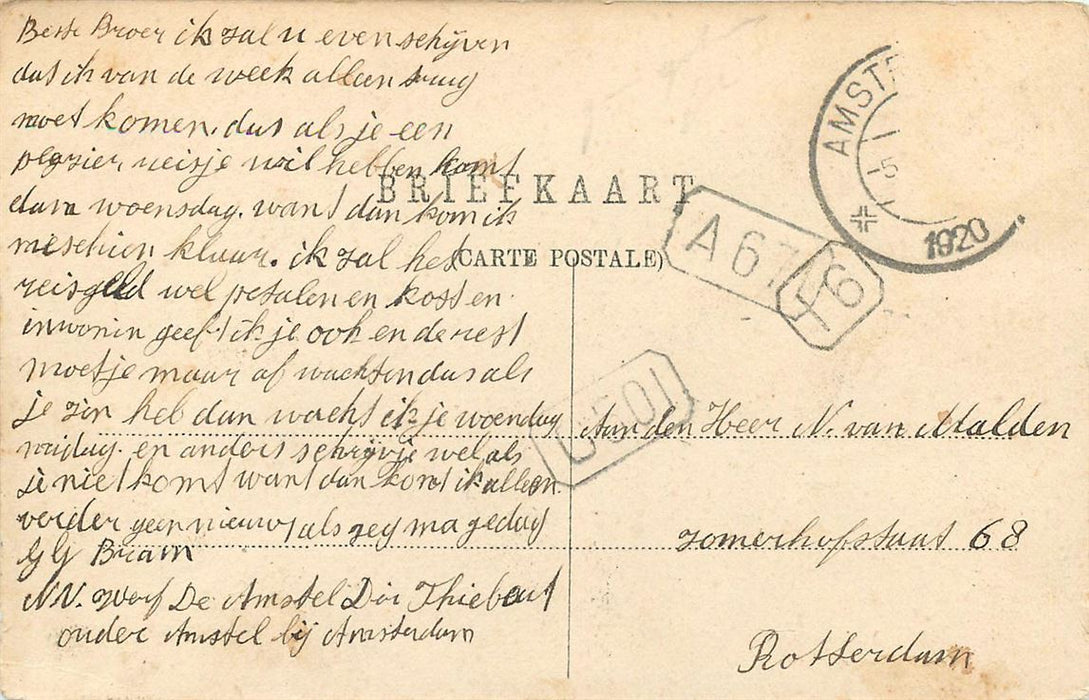 Beste Broer ik zal u even schijven
das ik van de week alleen traug
moet komen. dus als je een
plezier reisje wil hebben komt
dam woensdag. want dan kom ik
meschien klaar. ik zal het
reisgeld wel petalen en kost en
inwonin geeft ik je ook en de rest
moet je maar af wachten dus als
je zin heb dan wacht ik je woendag
vridag. en anders schrijvje wel als
je niet komt want dan komt ik alleen
verder geen nieuws als
G G Bram
NV. werf De Amstel Dir Thiebout
ouder Amstel bij Amsterdam
BRIEFKAART
(CARTE POSTALE)
AMST
5
1920
A 67
F6
Aan den Heer N. van Malden
zomerhofstaat 68
Rotterdam